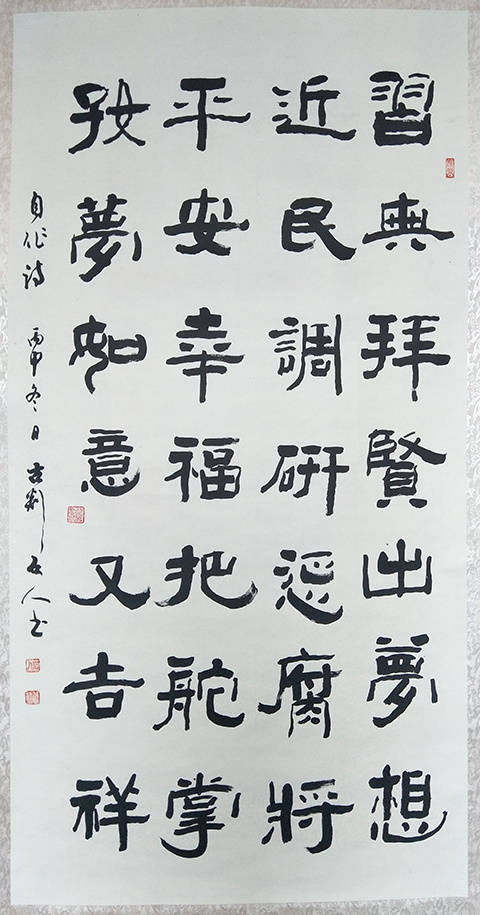 習典拜賢出夢想
近民調研惩腐將
平安幸福把舵掌
好夢如意又吉祥
自作詩 丙申冬日古荆石人书